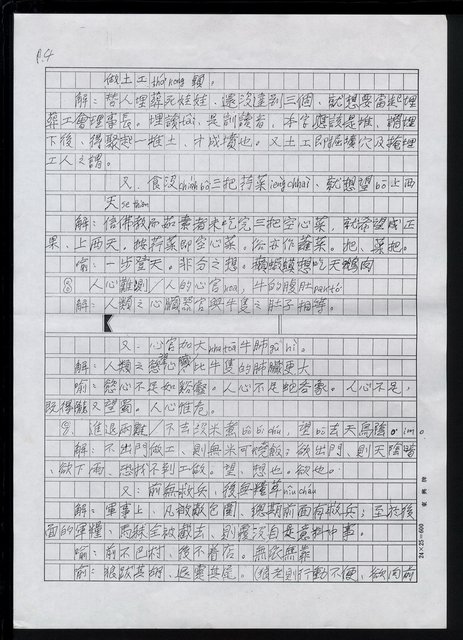 P.4
做土工thô͘ kong頭，
解：替人埋葬死娃娃、還沒達到三個、就想要當起埋
葬工會理事長。埋讀tâi，是訓讀者，本字應該是堆、掩埋
下後、得聚起一堆土、才成墳也。又土工即是掘穴及掩埋
工人之謂。
又．食沒三把蕹菜ièng chhài、就想望bō上西
天
解：信佛教而茹素者未吃完三把空心菜，就希望成正
果、上西天，按蕹菜即空心菜。俗亦作蕹菜。把、菜把。
喻：一步登天。非分之想。癩蝦蟆想吃天鵝肉
⑧ 人心難測/人的心官koa，牛的腹肚pak-tó͘
解：人類之心臟器官與牛隻之肚子相等。
又．心官加大 牛肺gû hì。
解：人類之慾心 比牛隻的肺臟更大
喻：慾心不足如谿壑。人心不足蛇吞象。人心不足，
既得隴又望蜀。人心惟危。
⑨ 進退兩難/下去沒米煮bô bí chú，望bō去天烏陰o͘ im。
解：不出門做工、則無米可燒飯；欲出門、則天陰暗
、欲下雨、恐找不到工做。望、想也。欲也。
又：前無救兵，後無糧草niû chháu
解：軍事上、凡被敵包圍、總期前面有救兵；至於後
面的軍糧、馬秣全被截去、則覆沒自是意料中事。
喻：前不巴村、後不著店。無依無靠
前：狼跋其胡，退疐其尾。(狼老則行動不便、欲向前
24×25=600